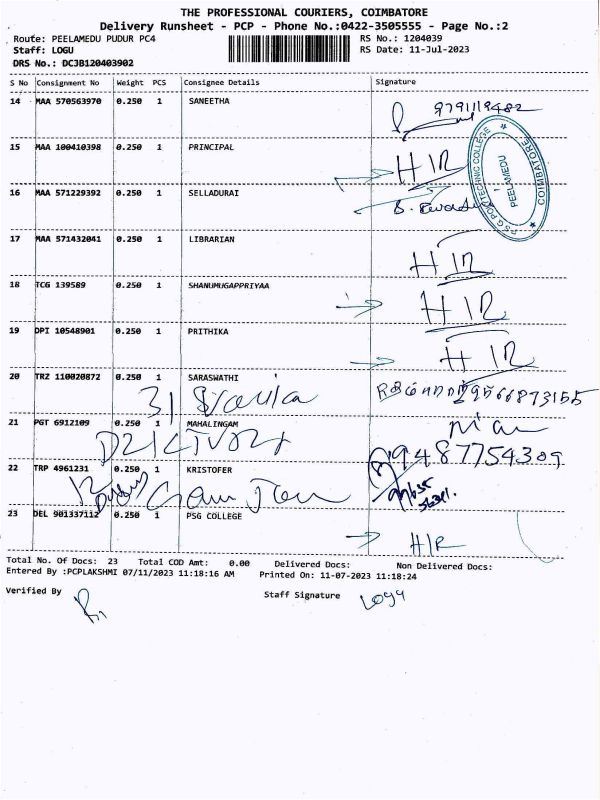 THE PROFESSIONAL COURIERS, COIMBATORE
Delivery Runsheet - PCP - Phone No.:0422-3505555 - Page No.:2
Route: PEELAMEDU PUDUR PC4 RS No.: 1204039
Staff: LOGU RS Date: 11-Jul-2023
DRS No.: DCJB120403902
S No Consignment No Weight PCS Consignee Details Signature
14 MAA 570563970 0.250 1 SANEETHA 9791119482
15 MAA 100410398 0.250 1 PRINCIPAL HIR
PSG POLYTECHNIC COLLEGE PEELAMEDU COIMBATORE
16 MAA 571229392 0.250 1 SELLADURAI
17 MAA 571432041 0.250 1 LIBRARIAN HIR
18 TCG 139589 0.250 1 SHANUMUGAPPRIYAA HIR
19 DPI 10548901 0.250 1 PRITHIKA HIR
20 TRZ 110020872 0.250 1 SARASWATHI 9566873155
21 PGT 6912109 0.250 1 MAHALINGAM
22 TRP 4961231 0.250 1 KRISTOFER 9487754309
23 DEL 901337112 0.250 1 PSG COLLEGE HIR
Total No. Of Docs: 23 Total COD Amt: 0.00 Delivered Docs: Non Delivered Docs:
Entered By :PCPLAKSHMI 07/11/2023 11:18:16 AM Printed On: 11-07-2023 11:18:24
Verified By Staff Signature Logu